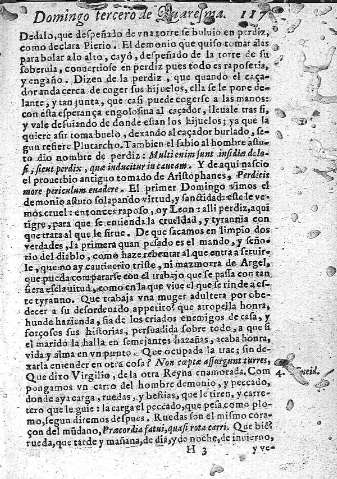 Domingo tercero de Quaresma. 117
Dedalo, que despeñado de vna torre se boluio en perdiz,
como declara Pierio. El demonio que quiso tomar alas
para bolar alo alto, cayó, despeñado de la torre de su
soberuia, conuertiose en perdiz pues todo es raposeria,
y engaño. Dizen de la perdiz, que quando el caça-
dor anda cerca de coger sus hijuelos, ella se le pone de-
lante, y tan junta, que casi puede cogerse a las manos:
con esta esperança engolosina al caçador, lleuale tras si,
y vale desuiando de donde estan los hijuelos; ya que la
quiere asir toma buelo, dexando al caçador burlado, se-
gun refiere Plutarcho. Tambien el sabio al hombre astu-
to dio nombre de perdiz: Multi enim sunt insidiæ dolo-
si, sicut perdix, quæ inducitur in caueam. Y de aqui nascio
el prouerbio antiguo tomado de Aristophanes, Perdicis
more periculum euadere. El primer Domingo vimos el
demonio astuto solapando virtud, y sanctidad: este le ve-
mos cruel: entonces raposo, oy Leon: alli perdiz, aqui
tigre, para que se entienda la crueldad, y tyrannia con
que trata al que le sirue. De que sacamos en limpio dos
verdades, la primera quan pesado es el mando, y seño-
rio del diablo, como haze rebentar al que entra a seruir-
le, que no ay cautiuerio triste, ni mazmorra de Argel,
que pueda compararse con el trabajo que se passa con tan
fiera esclauitud, como en la que viue el que se rinde a es-
te tyranno. Que trabaja vna muger adultera por obe-
decer a su desordenado appetito? que atropella honra,
hunde hazienda, fia de los criados enemigos de casa, y
forçosos sus historias, persuadida sobre todo, a que si
el marido la halla en semejantes hazañas, acaba honra,
vida y alma en vn punto. Que ocupada la trae; sin de-
xarla entender en otra cosa? Non cæptæ assurgunt turres,
Que dixo Virgilio, de la otra Reyna enamorada. Com
4. Æneid.
pongamos vn carro del hombre demonio, y peccado,
donde aya carga, ruedas, y bestias, que le tiren, y carre-
tero que le guie: la carga el peccado, que pesa como plo-
mo, segun diremos despues. Ruedas son el mismo cora-
çon del mũdano, Præcordia fatui, quasi rota carri. Que bien
rueda, que tarde y mañana, de dia, y do noche, de inuierno,
H 3 y ve-